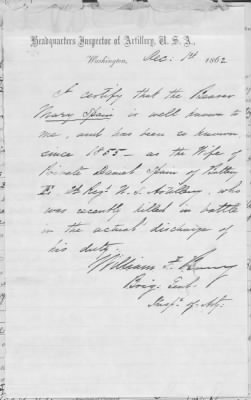 Headquarters Inspector of Artillery, U. S. A.,
Washington, Dec. 1st 1862
I certify that the Bearer
Mary Spain is well known to
me, and has been so known
since 1855 – as the Wife of
Private Daniel Spain of Battery
2d Regt U. S. Artillery, who
was recently killed in battle
in the actual discharge of
his duty.
William F. Barry
Brig. Genl.
Insp. of Art.